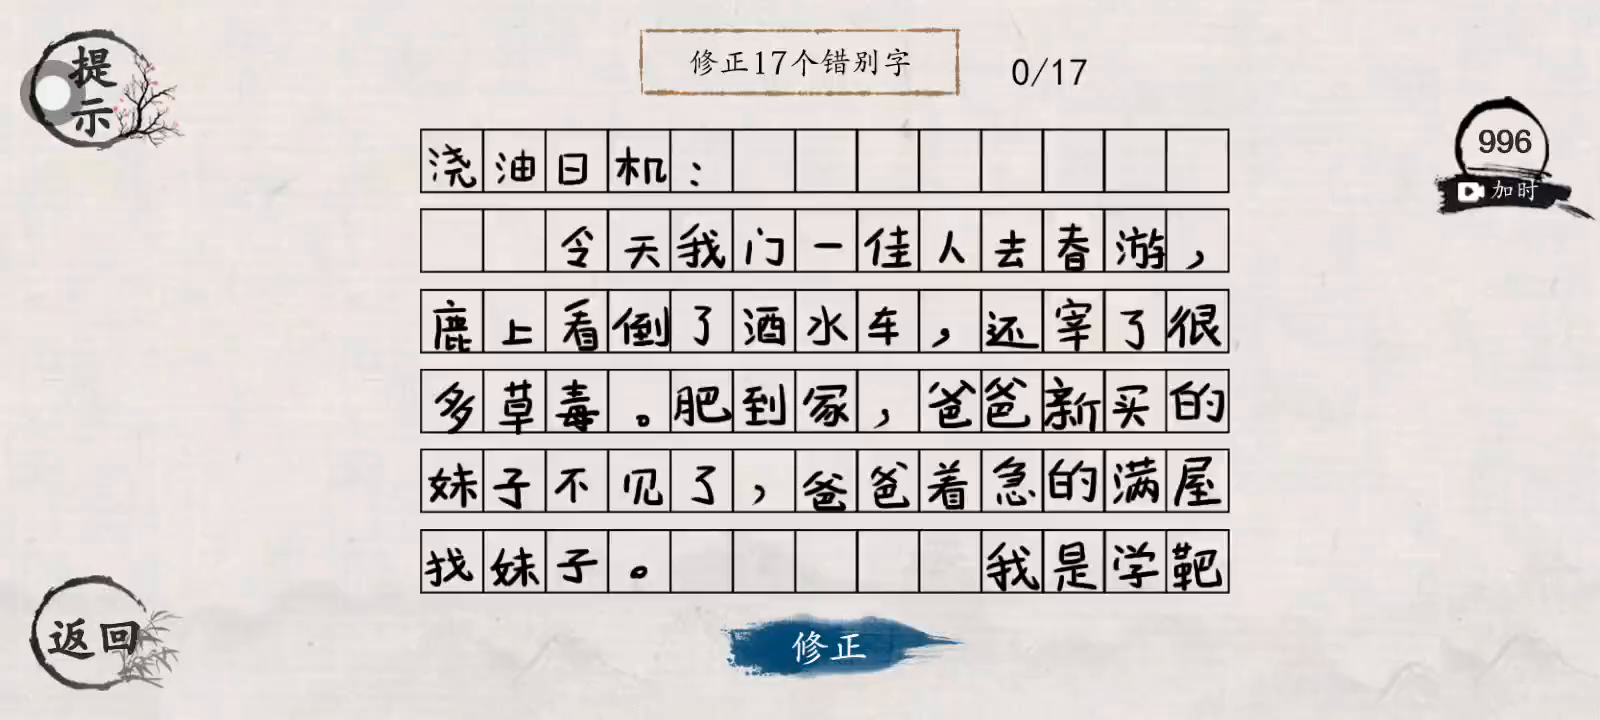 提示
修正17个错别字 0/17
996
加时
浇油日机：
令天我门一佳人去春游，
鹿上看倒了酒水车，还宰了很
多草毒。肥到冢，爸爸新买的
妹子不见了，爸爸着急的满屋
找妹子。 我是学靶
返回
修正